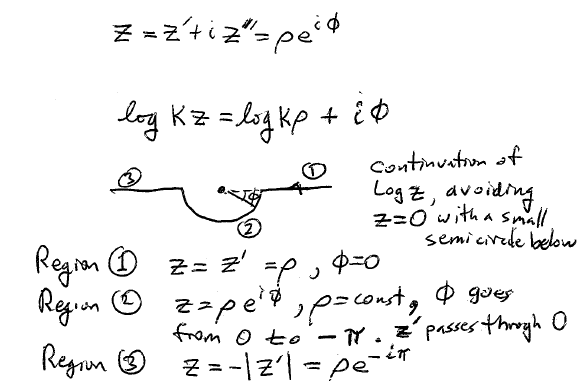 z = z' + i z'' = ρe^{iϕ}
log Kz = log Kρ + iϕ
③ ϕ ① ②
continuation of
Log z, avoiding
z=0 with a small
semicircle below
Region ① z = z' = ρ, ϕ=0
Region ② z = ρe^{iϕ}, ρ=const, ϕ goes
from 0 to -π. z' passes through 0
Region ③ z = -|z'| = ρe^{-iπ}